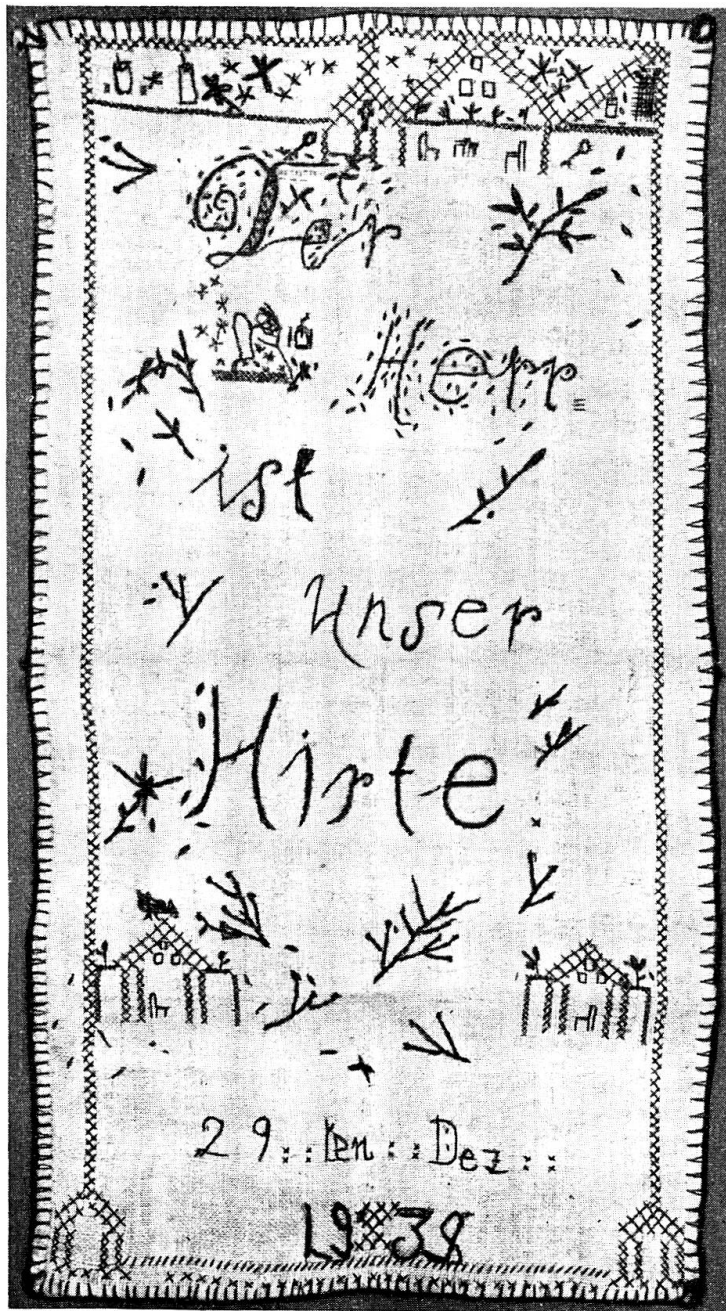 Der
Herr
ist
unser
Hirte
29. ten Dez.
1938